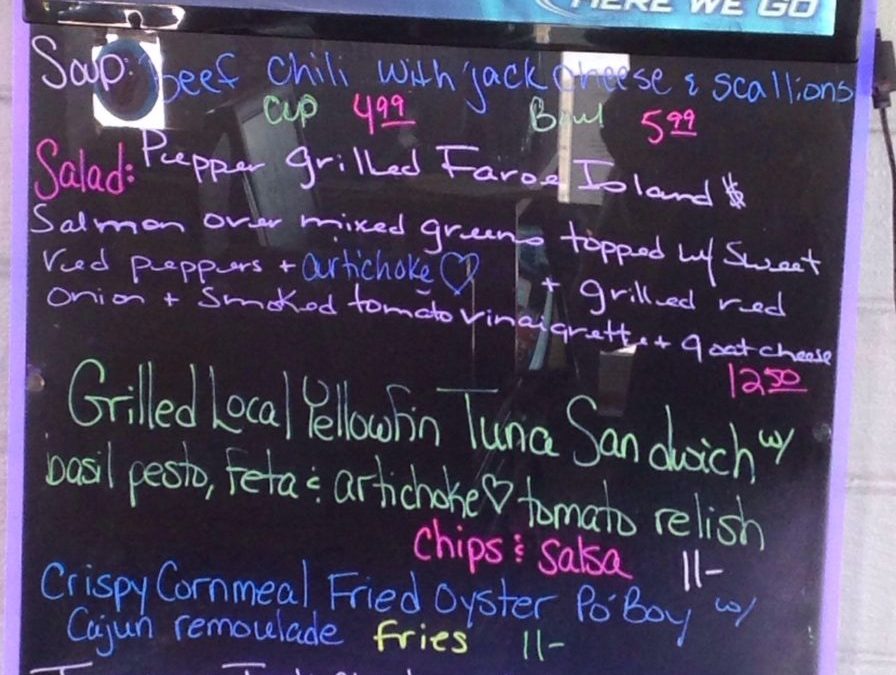 HERE WE GO
Soup: beef chili with jack cheese & scallions
Cup 4.99 Bowl 5.99
Salad: Pepper grilled Faroe Island $
Salmon over mixed greens topped w/ Sweet
red peppers + artichoke ♡ + grilled red
onion + Smoked tomato vinaigrette + goat cheese
12.50
Grilled Local Yellowfin Tuna Sandwich w/
basil pesto, Feta & artichoke ♡ tomato relish
Chips & Salsa 11-
Crispy Cornmeal Fried Oyster Po'Boy w/
Cajun remoulade Fries 11-